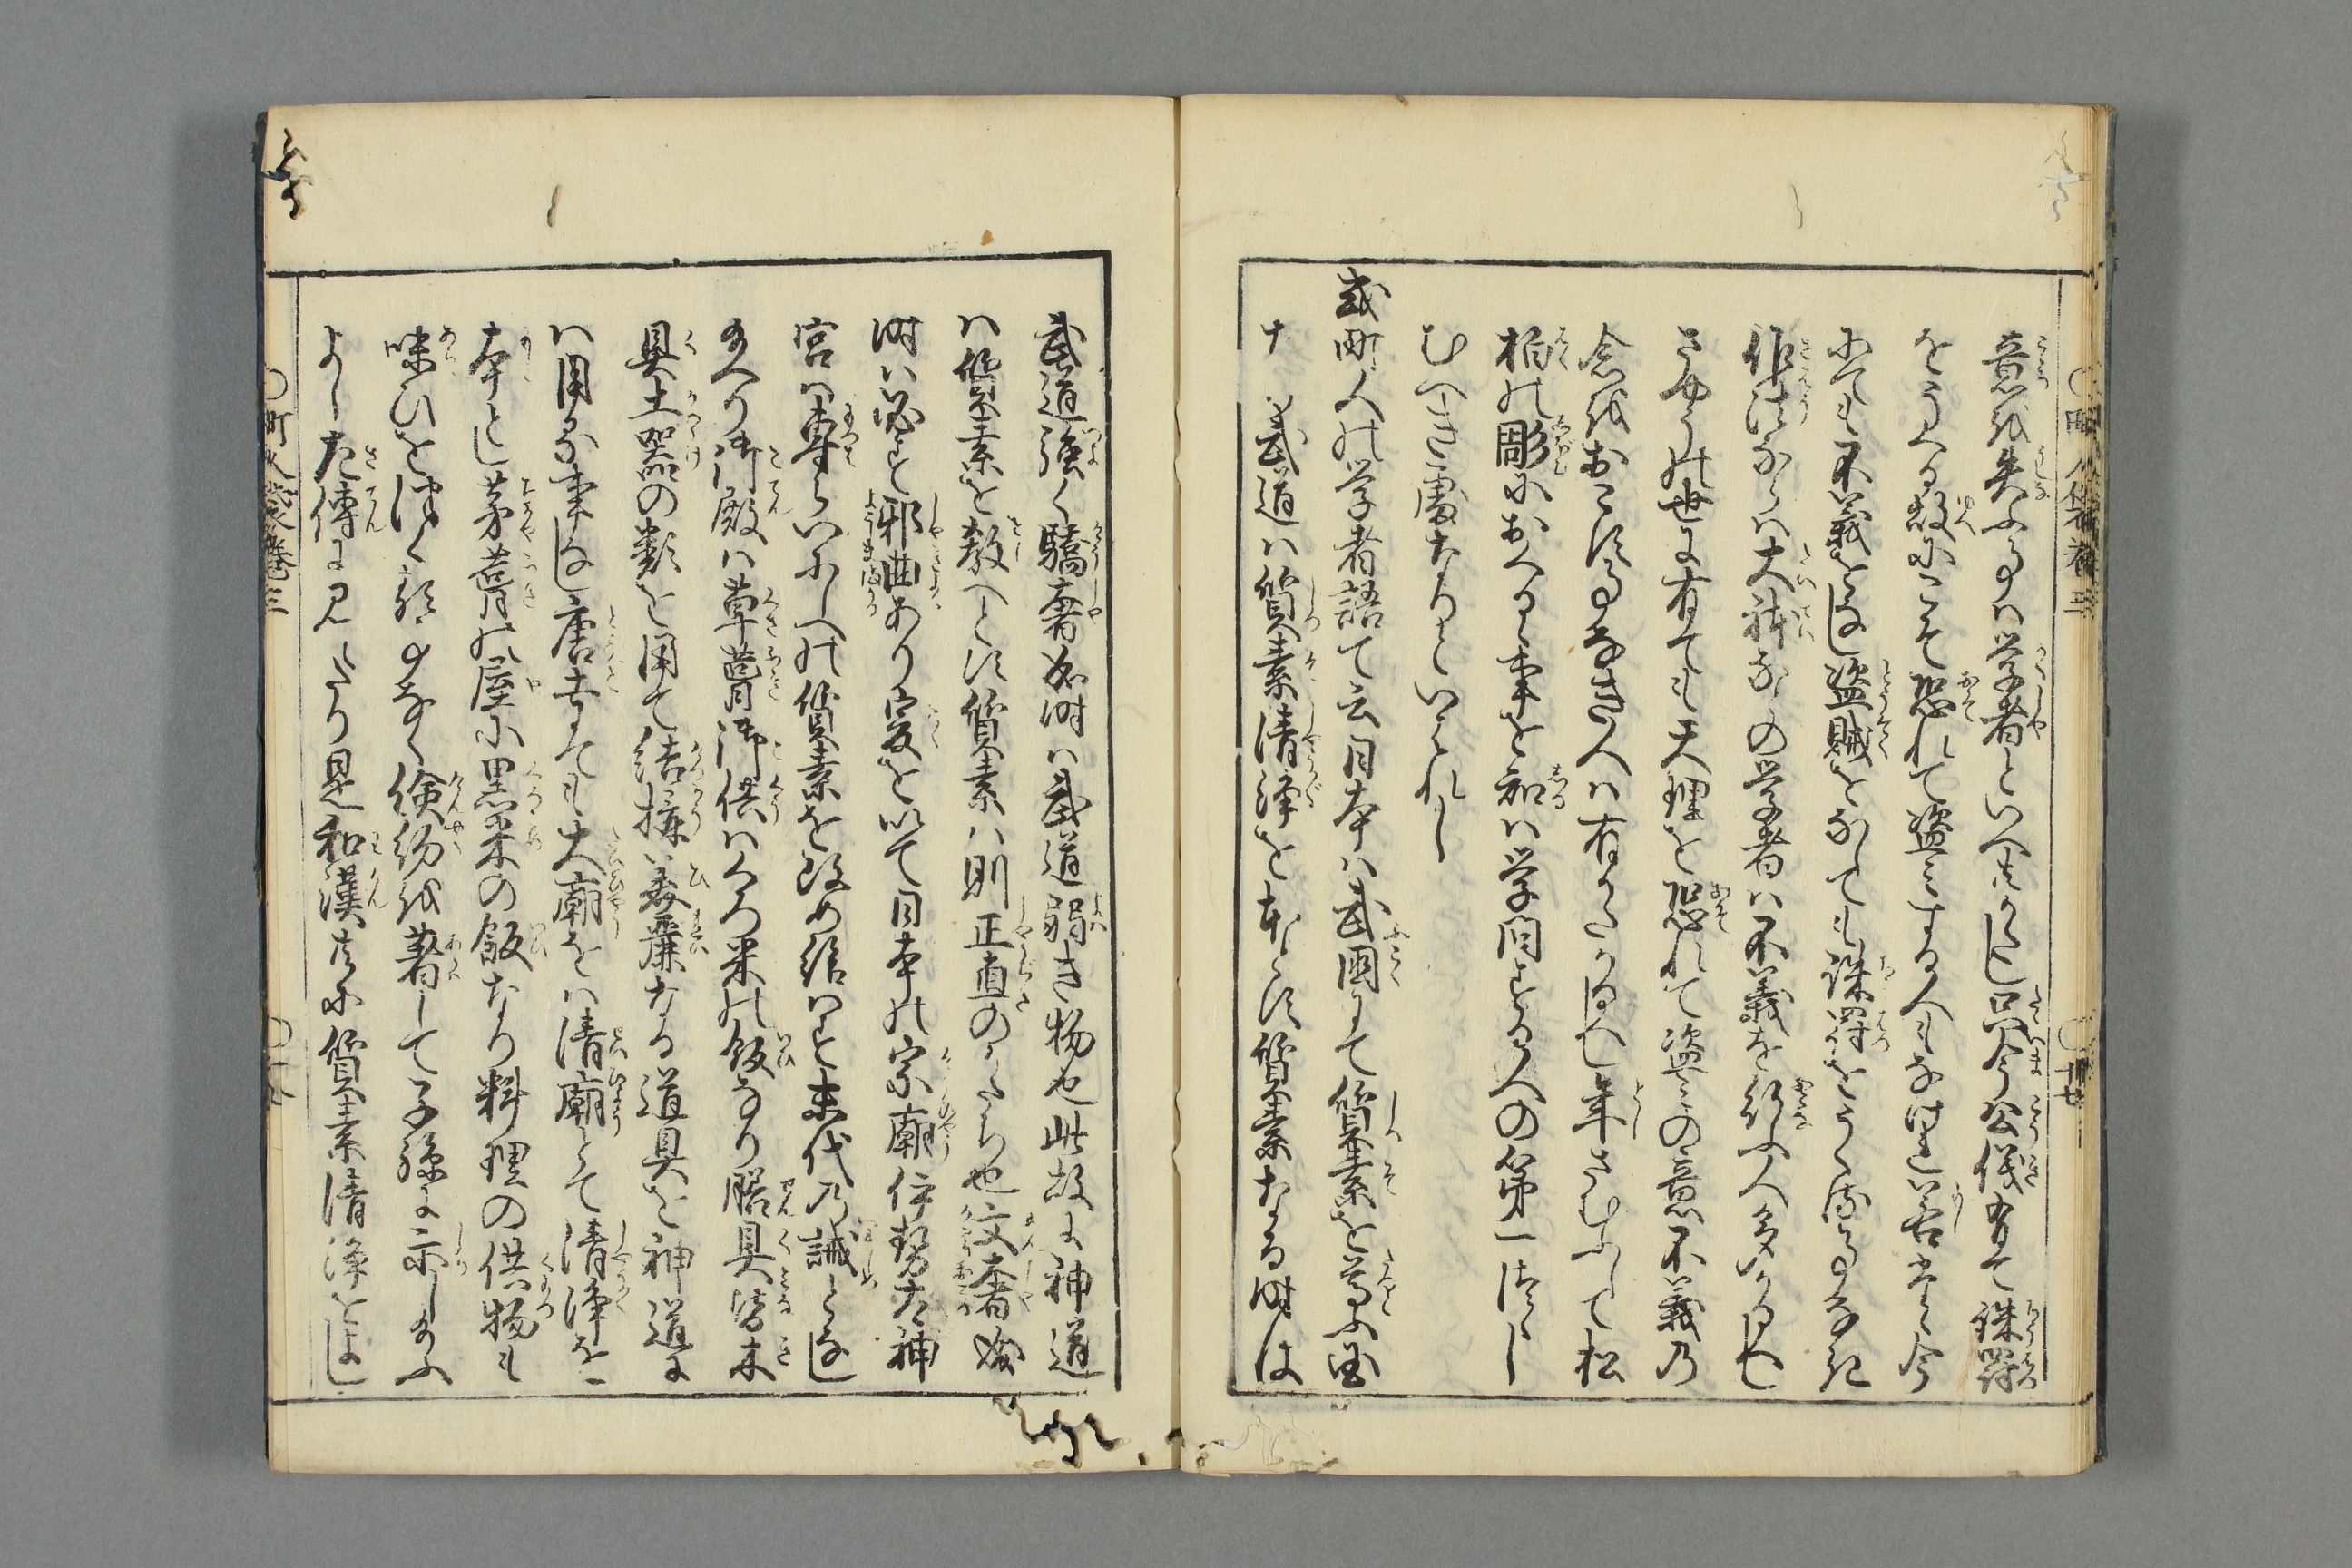 意を失ふ事は学者といへ共かくし只今公儀有て誅罰
をうくる故にこそ恐れて盗みする人もなけれ若當今
にても不義をなし盗賊をなしても誅罰をうくる事なき
作法ならは大躰の学者は不義を行ふ人多かるへし
さやうの世に有ても天理を恐れて盗みの意不義の
念をおこす事なき人は有かたかるへし年さむふして松
柏の彫におくるゝ事を知は学問する人の第一たしし
むへき處なりといはれし
或町人の学者語て云日本は武国にて質素を尊ふ国
也武道は質素清浄を本とす質素なる時は
武道強く驕奢なる時は武道弱き物也此故に神道
は質素を教へとす質素は則正直のかたち也文奢なる
時は必す邪曲あり爰を以て日本の宗廟伊勢太神
宮は専らいにしへの質素を改め給はす末代の誡となし
給へり御殿は草葺御供はくろ米の飯なり膳具皆木
具土器の類を用て結構美麗なる道具を神道に
は用る事なし唐土にても大廟をは清廟とて清浄を
本とし茅葺の屋に黒米の飯なり料理の供物も
味ひを深く調る事なく倹約を著して子孫に示し給ふ
よし左傳に見えたり是和漢共に質素清浄をよし
町人嚢巻三